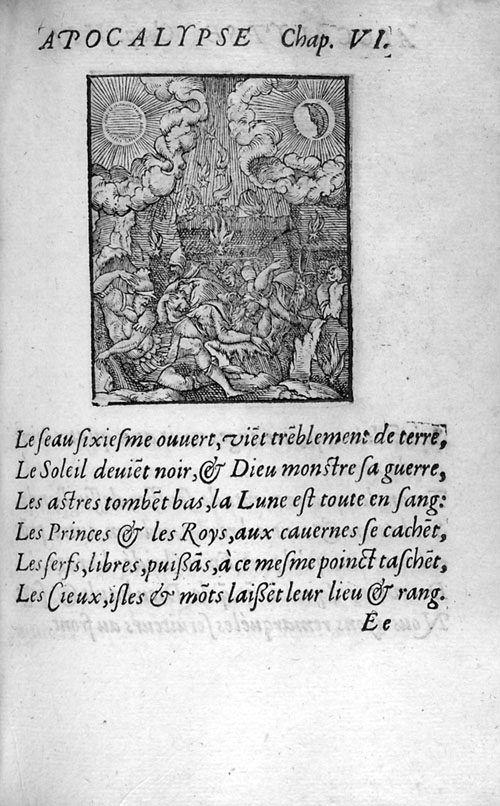 APOCALYPSE Chap. VI.
Le ſeau ſixieſme ouvert, viẽt trẽblement de terre,
Le Soleil deviẽt noir, & Dieu monſtre ſa guerre,
Les aſtres tombẽt bas, la Lune eſt toute en ſang:
Les Princes & les Roys, aux cauernes ſe cachẽt,
Les ſerfs, libres, puiſſãs, à ce meſme poinct taſchẽt,
Les Cieux, iſles & mõts laiſſẽt leur lieu & rang.
E e